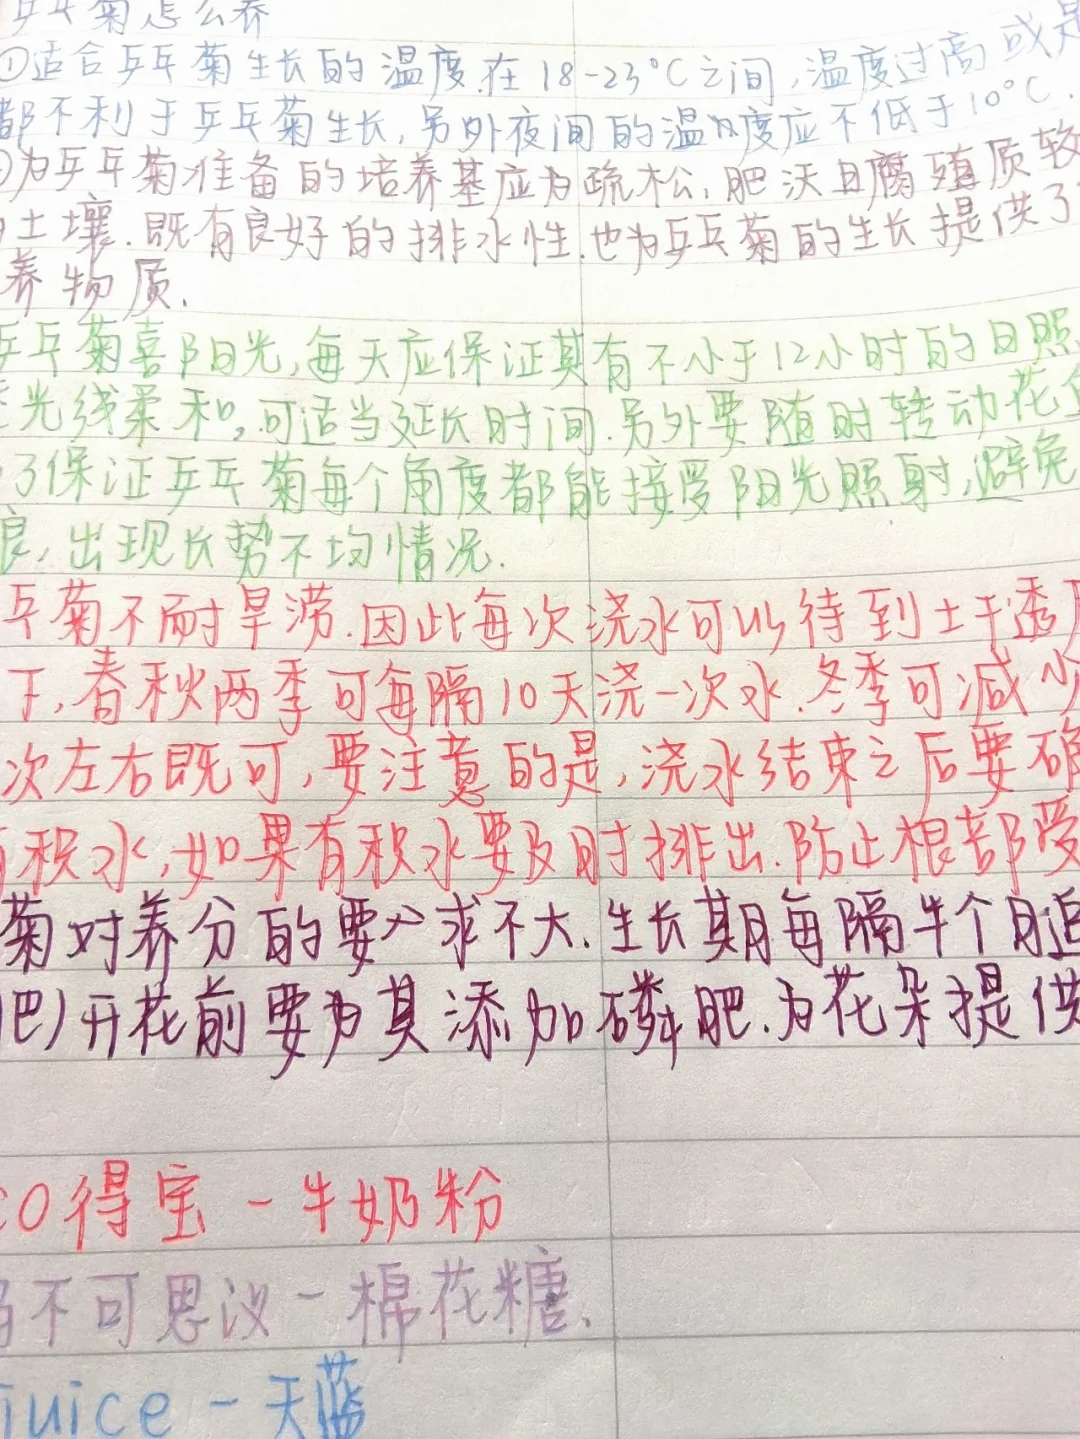 乒乓菊怎么养
①适合乒乓菊生长的温度.在18-23°C之间,温度过高或是
都不利于乒乓菊生长,另外夜间的温度应不低于10°C.
为乒乓菊准备的培养基应为疏松,肥沃且腐殖质较
土壤.既有良好的排水性.也为乒乓菊的生长提供了
养物质.
乒乓菊喜阳光,每天应保证其有不小于12小时的日照
光线柔和,可适当延长时间.另外要随时转动花盆
了保证乒乓菊每个角度都能接受阳光照射,避免
良,出现长势不均情况.
乓菊不耐旱涝.因此每次浇水可以待到土干透
下,春秋两季可每隔10天浇一次水.冬季可减少
次左右既可,要注意的是,浇水结束之后要确
积水,如果有积水要及时排出.防止根部受
菊对养分的要求不大.生长期每隔半个月追
肥)开花前要为其添加磷肥.为花朵提供
得宝-牛奶粉
不可思议-棉花糖.
juice-天蓝